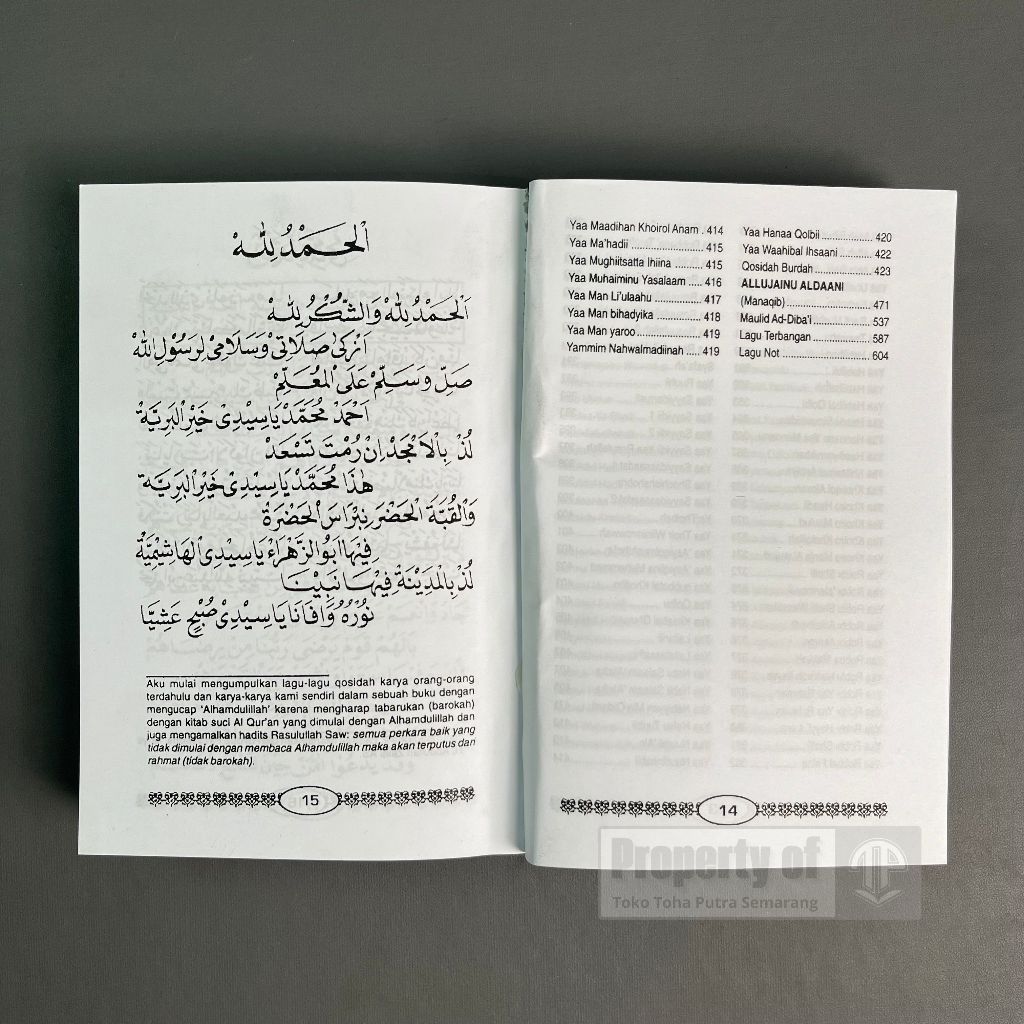 Yaa Maadihan Khoirol Anam . 414
Yaa Ma'hadii ..................... 415
Yaa Mughiitsatta Ihiina ......... 415
Yaa Muhaiminu Yasalaam ..... 416
Yaa Man Li'ulaahu ............... 417
Yaa Man bihadyika .............. 418
Yaa Man yaroo .................... 419
Yammim Nahwalmadiinah .... 419
Yaa Hanaa Qolbii ................ 420
Yaa Waahibal Ihsaani .......... 422
Qosidah Burdah .................. 423
ALLUJAINU ALDAANI
(Manaqib) ........................... 471
Maulid Ad-Diba'i .................. 537
Lagu Terbangan .................. 587
Lagu Not ............................. 604
14
اَلْحَمْدُ لِلّٰهْ
اَلْحَمْدُ لِلّٰهْ وَالشُّكْرُ لِلّٰهْ
اَزْكٰى صَلَاتِىْ وَسَلَامِىْ لِرَسُوْلِ اللهْ
صَلِّ وَسَلِّمْ عَلَى الْمُعَلِّمْ
اَحْمَدْ مُحَمَّدْ يَاسِيْدِىْ خَيْرِ الْبَرِيَّةْ
لُذْ بِالْاَمْجَدْ اِنْ رُمْتَ تَسْعَدْ
هٰذَا مُحَمَّدْ يَاسِيْدِىْ خَيْرِ الْبَرِيَّةْ
وَالْقُبَّةَ الْخَضْرَ نِبْرَاسَ الْحَضْرَةْ
فِيْهَا اَبُو الزَّهْرَاءْ يَاسِيْدِى الْهَاشِيْمِيَّةْ
لُذْ بِالْمَدِيْنَةْ فِيْهَا نَبِيْنَا
نُوْرُهُ وَافَانَا يَاسِيْدِىْ صُبْحٍ عَشِيَّا
Aku mulai mengumpulkan lagu-lagu qosidah karya orang-orang
terdahulu dan karya-karya kami sendiri dalam sebuah buku dengan
mengucap 'Alhamdulillah' karena mengharap tabarukan (barokah)
dengan kitab suci Al Qur'an yang dimulai dengan Alhamdulillah dan
juga mengamalkan hadits Rasulullah Saw: semua perkara baik yang
tidak dimulai dengan membaca Alhamdulillah maka akan terputus dari
rahmat (tidak barokah).
15
Property of
Toko Toha Putra Semarang